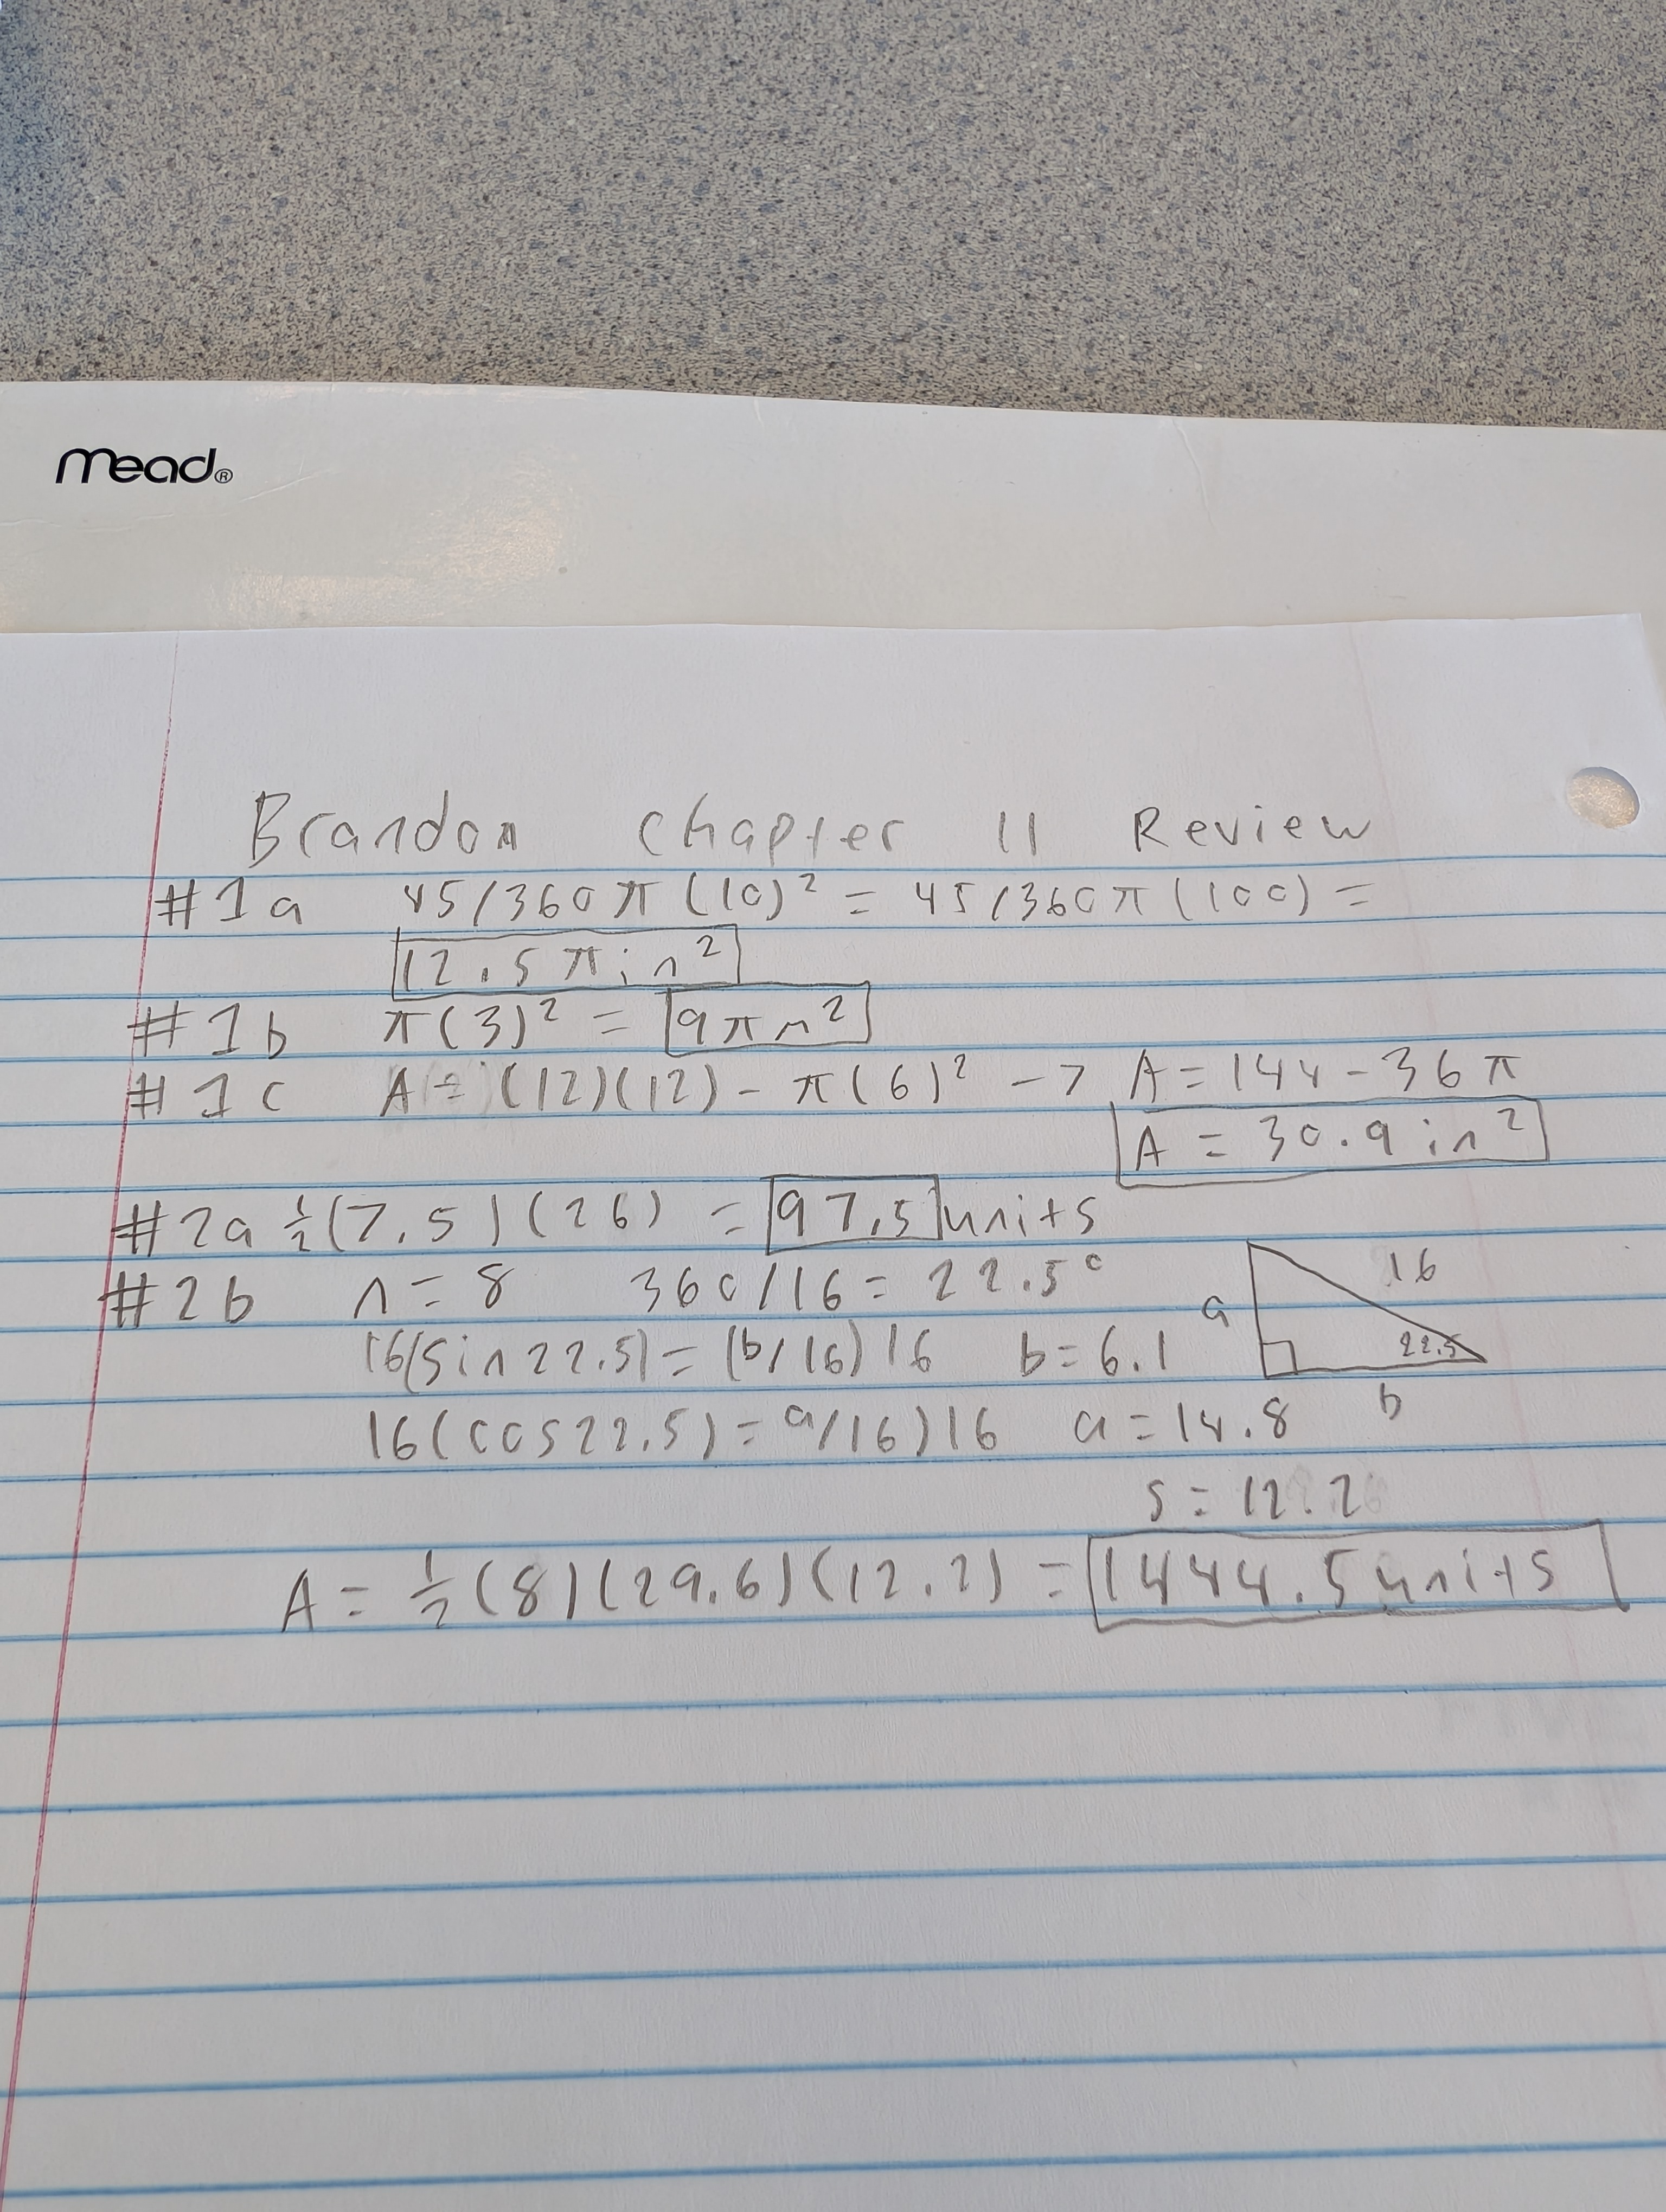 mead®
Brandon Chapter 11 Review
#1a 45/360π(10)² = 45/360π(100) =
12.5πin²
#1b π(3)² = 9πm²
#1c A = (12)(12) - π(6)² -> A = 144 - 36π
A = 30.9in²
#2a ½(7.5)(26) = 97.5 units
#2b n = 8 360/16 = 22.5°
16
a
22.5
b
16(sin22.5) = (b/16)16 b = 6.1
16(cos22.5) = a/16)16 a = 14.8
s = 12.2
A = ½(8)(29.6)(12.2) = 1444.5units